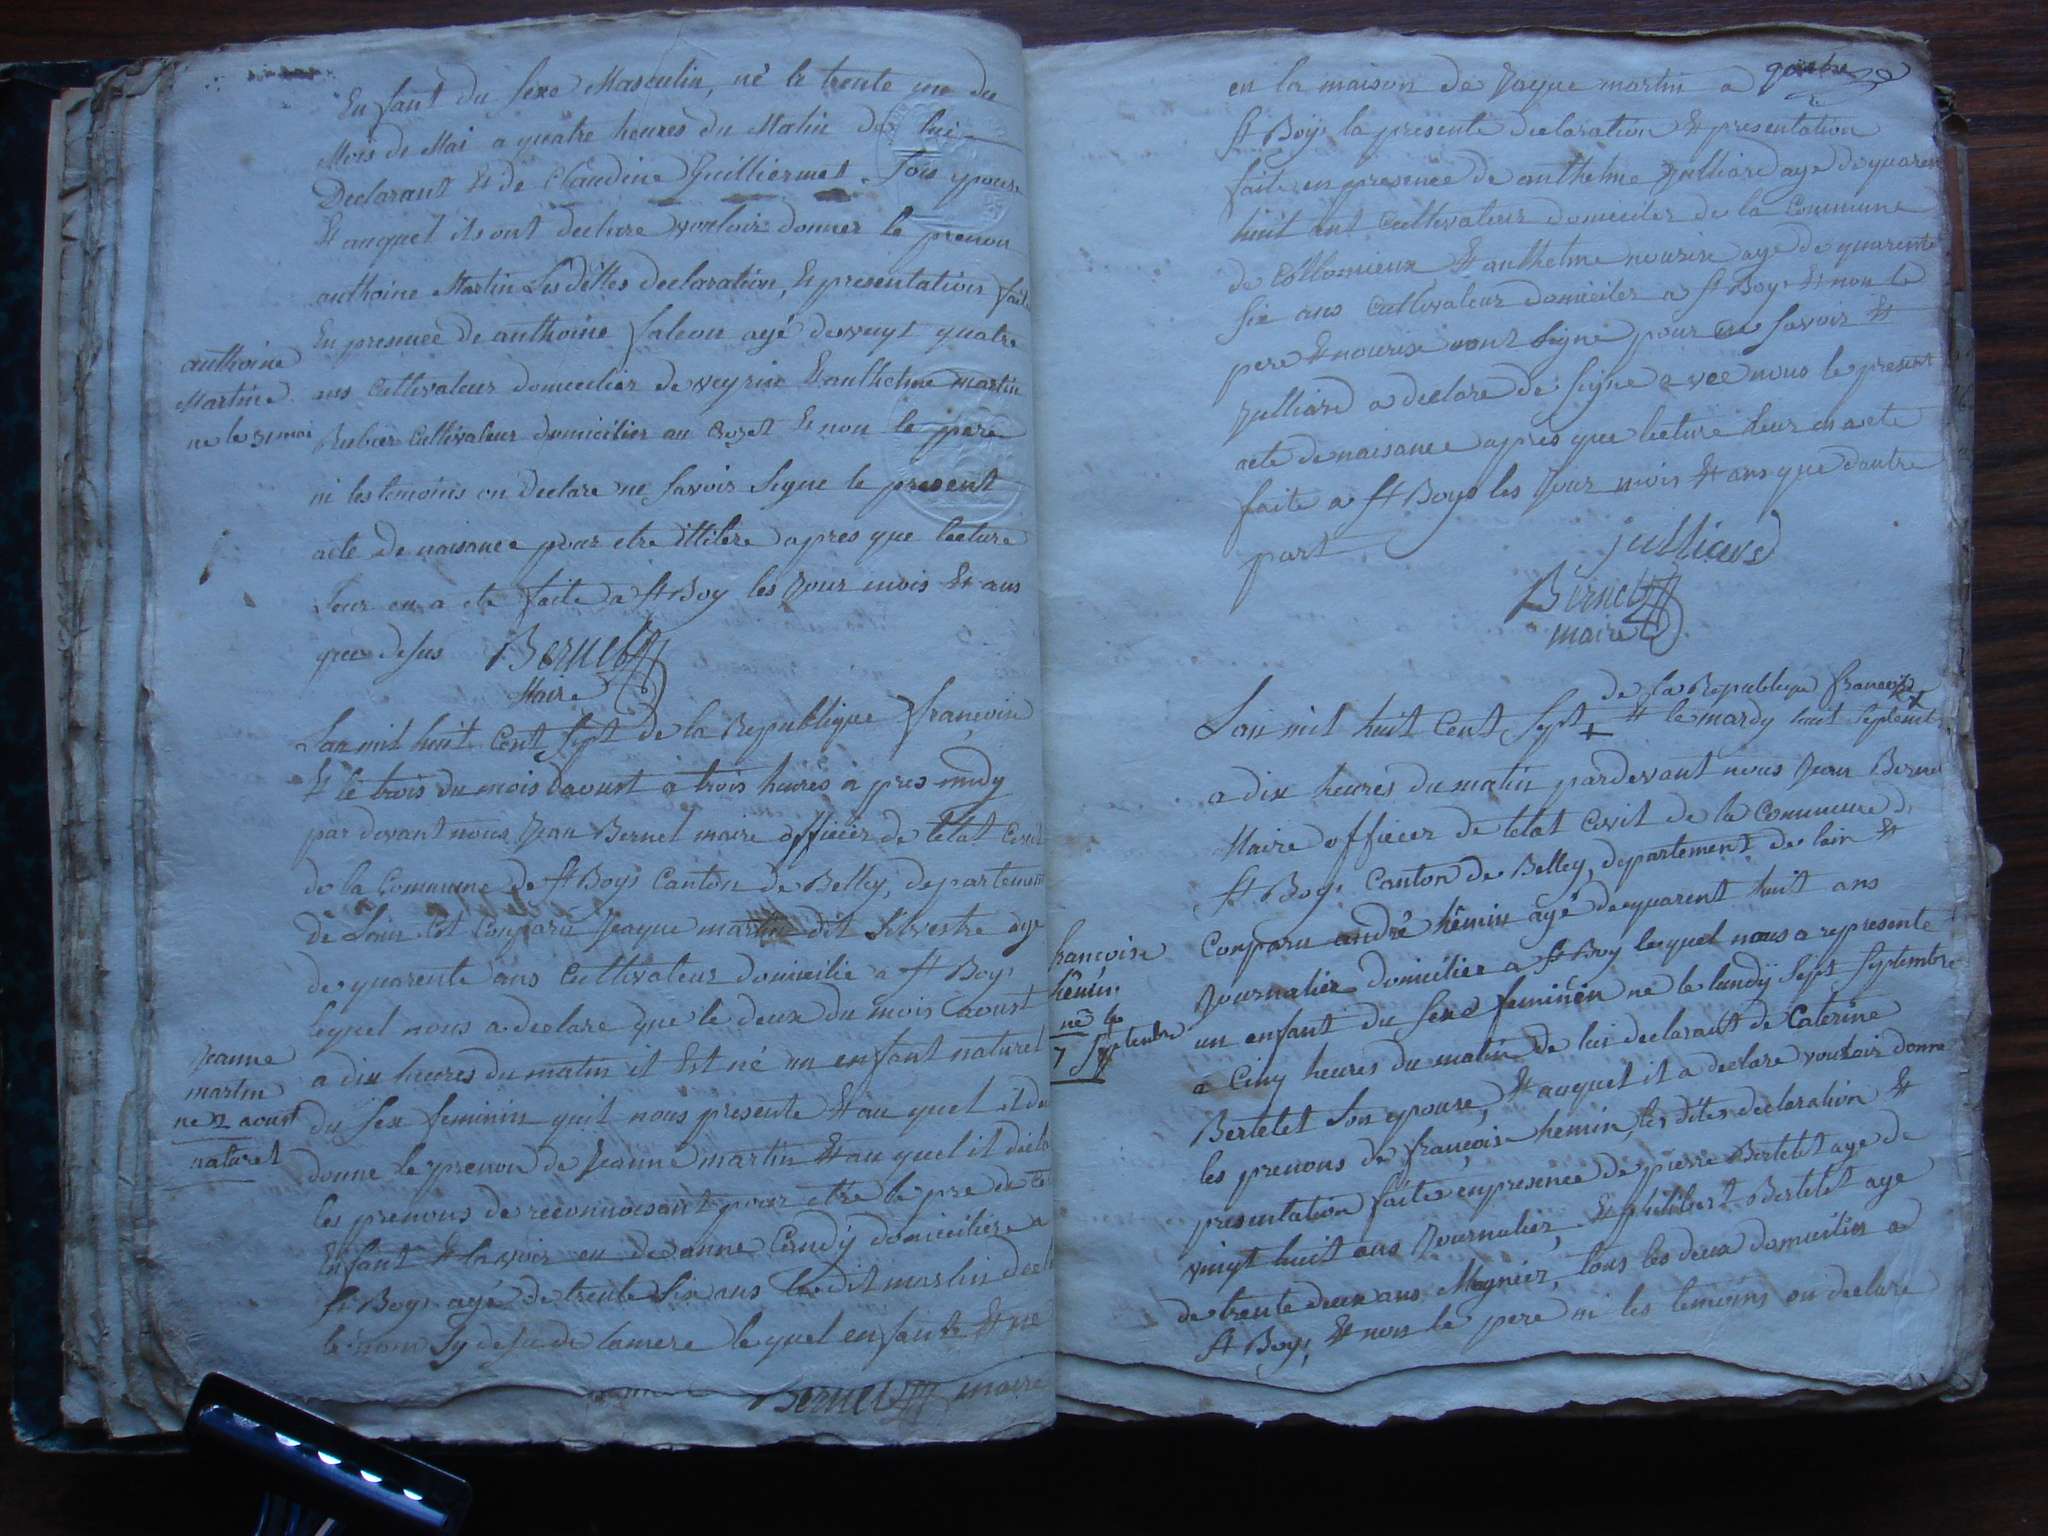 Enfant du Sexe Masculin, né le trente une du
Mois de Mai a quatre heures du Matin de lui
Declarant et de Claudine Guilliermet Son epouse
Et auquel ils ont declare vouloir donner le prenon
anthoine Martin Les dittes declaration, Et presentation faite
En presence de anthoine falcon agé de vingt quatre
anthoine
Martin
ne le 31 mai
ans Cultivateur domicilier de veyrin Et anthelme martin
Rubier Cultivateur domicilier au Crozet Et non le pere
ni les temoins on Declare ne Savoir Signe le present
acte De naisance pour etre illitere apres que lecture
Leur en a ete faite a St Boy les Jour mois Et ans
que desus Bernet
Maire
Lan mil huit Cent Sept de la Republique francoise
Et le trois du mois daoust a trois heures a pres midy
par devant nous Jean Bernet maire officier de letat Civil
de la Commune de St Boys Canton de Belley, departement
de Lain Est Conparu Jaque martin dit Silvestre age
de quarente ans Cultivateur domicilie a St Boys
lequel nous a declare que le deux du mois daoust
Jeanne
martin
ne 2 aoust
naturel
a dix heures du matin il Est né un enfant naturel
du Sex feminin quil nous presente Et au quel il
donne le prenon de Jeanne martin Et au quel il
les prenons de reconnoisant pour etre le pre de
Enfant Et lavoir eu de anne Cendy domicilière a
St Boys agé de trente Six ans le dit martin
le nom Sy desu de lamere le quel enfant Et ne
Bernet maire
en la maison de Jaque martin a
St Boys la presente declaration Et presentation
faite en presence de anthelme Julliard age de quarente
huit ant Cultivateur domicilier de la Commune
de Collomieux Et anthelme nourix age de quarente
Six ans Cultivateur domicilier a St Boys Et non le
pere Et nourix nont Signe pour ne Savoir Et
Julliard a declare de Signe avec nous le present
acte de naisance apres que lecture leur en a ete
faite a St Boys les Jour mois Et ans que dautre
part
julliard
Bernet
maire
de la Republique francoise
Lan mil huit Cent Sept Et le mardy huit Septembre
a dix heures du matin pardevant nous Jean Bernet
Maire officier de letat Civil de la Commune de
St Boys Canton de Belley, departement de lain Et
Conparu andré hémin agé de quarent huit ans
francoise
hémin
né le
7 Septembre
Journalier domicilier a St Boy lequel nous a represente
un enfant du Sexe feminin ne le lundy Sept Septembre
a Cinq heures du matin de lui declarant de Caterine
Bertelet Son epouse, Et auquel il a declare vouloir donne
les prenons de françoise hemin, les dites declaration Et
presentation faite en presence de pierre Bertelet age de
vingt huit ans Journalier, Et philibert Bertelet age
de trente deux ans Magnier, tous les deux domicilier a
St Boys, Et nons le pere ni les temoins on declare